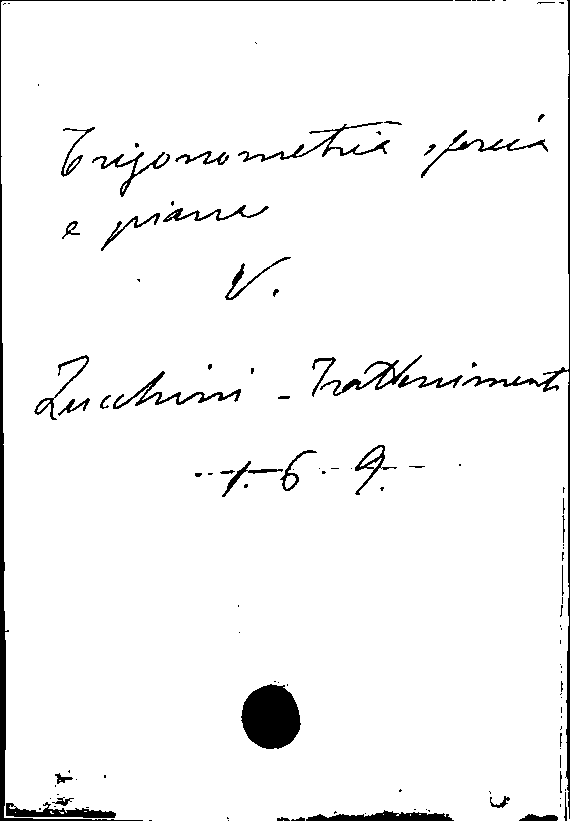 Trigonometria sferica
e piana
V.
Zucchini - Trattenimenti
1. 6. 9.